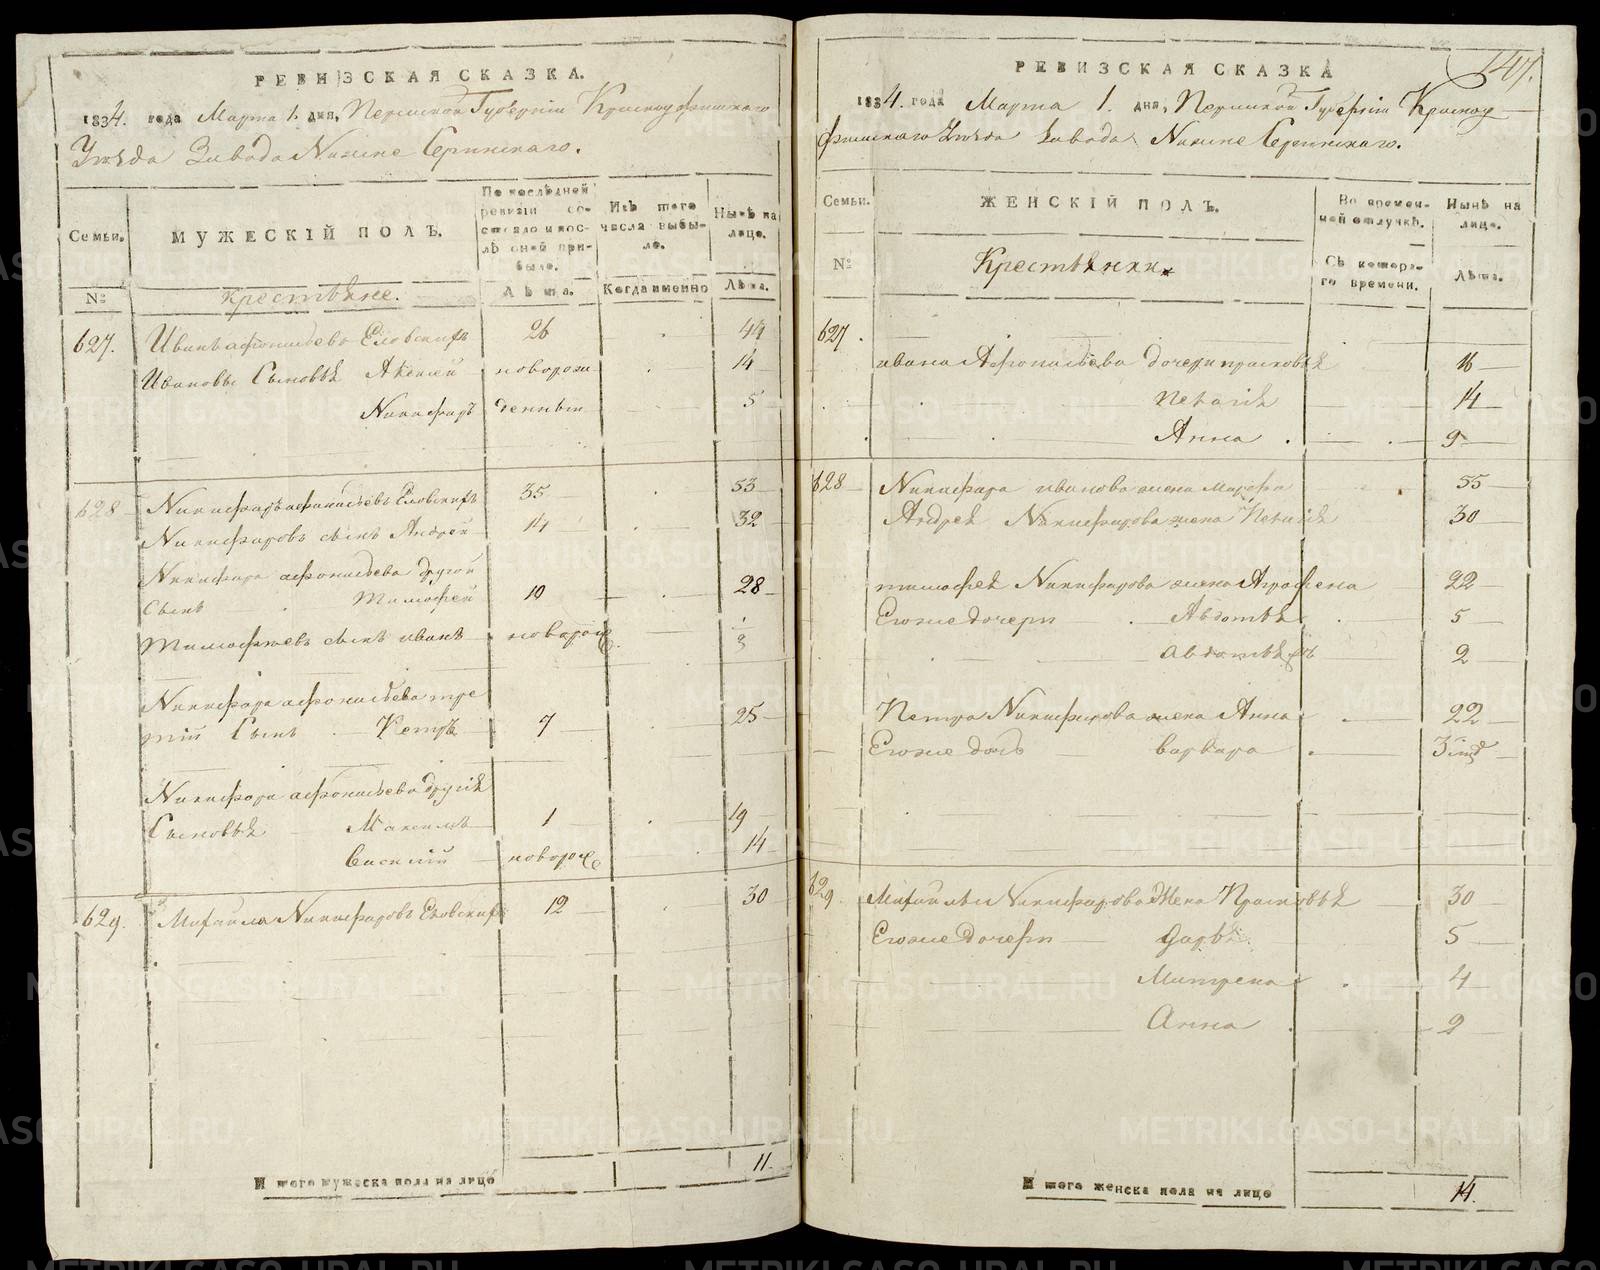 РЕВИЗСКАЯ СКАЗКА.
1834. года Марта 1. дня, Пермской Губерніи Красноуфимскаго
Уѣзда Завода Нижне Сергинскаго.
Семьи.
МУЖЕСКІЙ ПОЛЪ.
По послѣдней ревизіи состояло и послѣ оной прибыло.
Изъ того числа выбыло.
Нынѣ на лицо.
№
Крестьяне.
Лѣта.
Когда именно
Лѣта.
627. Иванъ Афонасьевъ Еловскихъ 26 44
Ивановы Сыновья Алексей новорож 14
Никифоръ денныи 5
628 Никифоръ афонасьевъ Еловскихъ 35 53
Никифоровъ сынъ Андрей 14 32
Никифора афонасьева другой
Сынъ Тимофей 10 28
Тимофѣевъ сынъ иванъ новорож
Никифора афонасьева тре
тій Сынъ Петръ 7 25
Никифора афонасьева другія
Сыновья Максимъ 1 19
Василій новорож 14
629. Михайла Никифоровъ Еловскихъ 12 30
Итого мужеска пола на лицо 11.
147.
РЕВИЗСКАЯ СКАЗКА
1834. года Марта 1. дня, Пермской Губерніи Красноу
фимскаго Уѣзда Завода Нижне Сергинскаго.
Семьи.
ЖЕНСКІЙ ПОЛЪ.
Во временной отлучкѣ.
Нынѣ на лицо.
№
Крестьянки.
Съ котораго времени.
Лѣта.
627.
ивана Афонасьева дочери прасковья 16
Пелагія 14
Анна 9
628 Никифора иванова жена Марфа 55
Андрея Никифорова жена Пелагія 30
тимофея Никифорова жена Аграфена 22
Егоже дочери Авдотья 5
Авдотья 2
Петра Никифорова жена Анна 22
Егоже дочь варвара
629. Михайлы Никифорова Жена Прасковья 30
Егоже дочери Дарья 5
Матрена 4
Анна 2
Итого женска пола на лицо 14.
METRIKI.GASO-URAL.RU